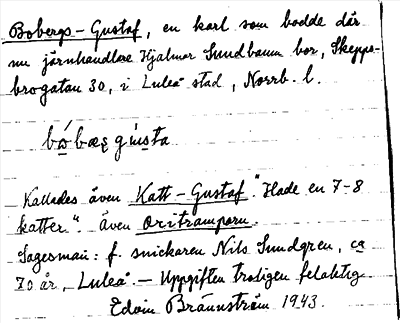 Bobergs-Gustaf, en karl som bodde där
nu järnhandlare Hjalmar Sundbaum bor, Skepps-
brogatan 30, i Luleå stad, Norrb. l.
Kallades även Katt-Gustaf. "Hade en 7-8
katter." Även Oritramparn.
Sagesman: f. snickaren Nils Sundgren, ca
70 år, Luleå. — Uppgiften troligen felaktig.
Edvin Brännström 1943.